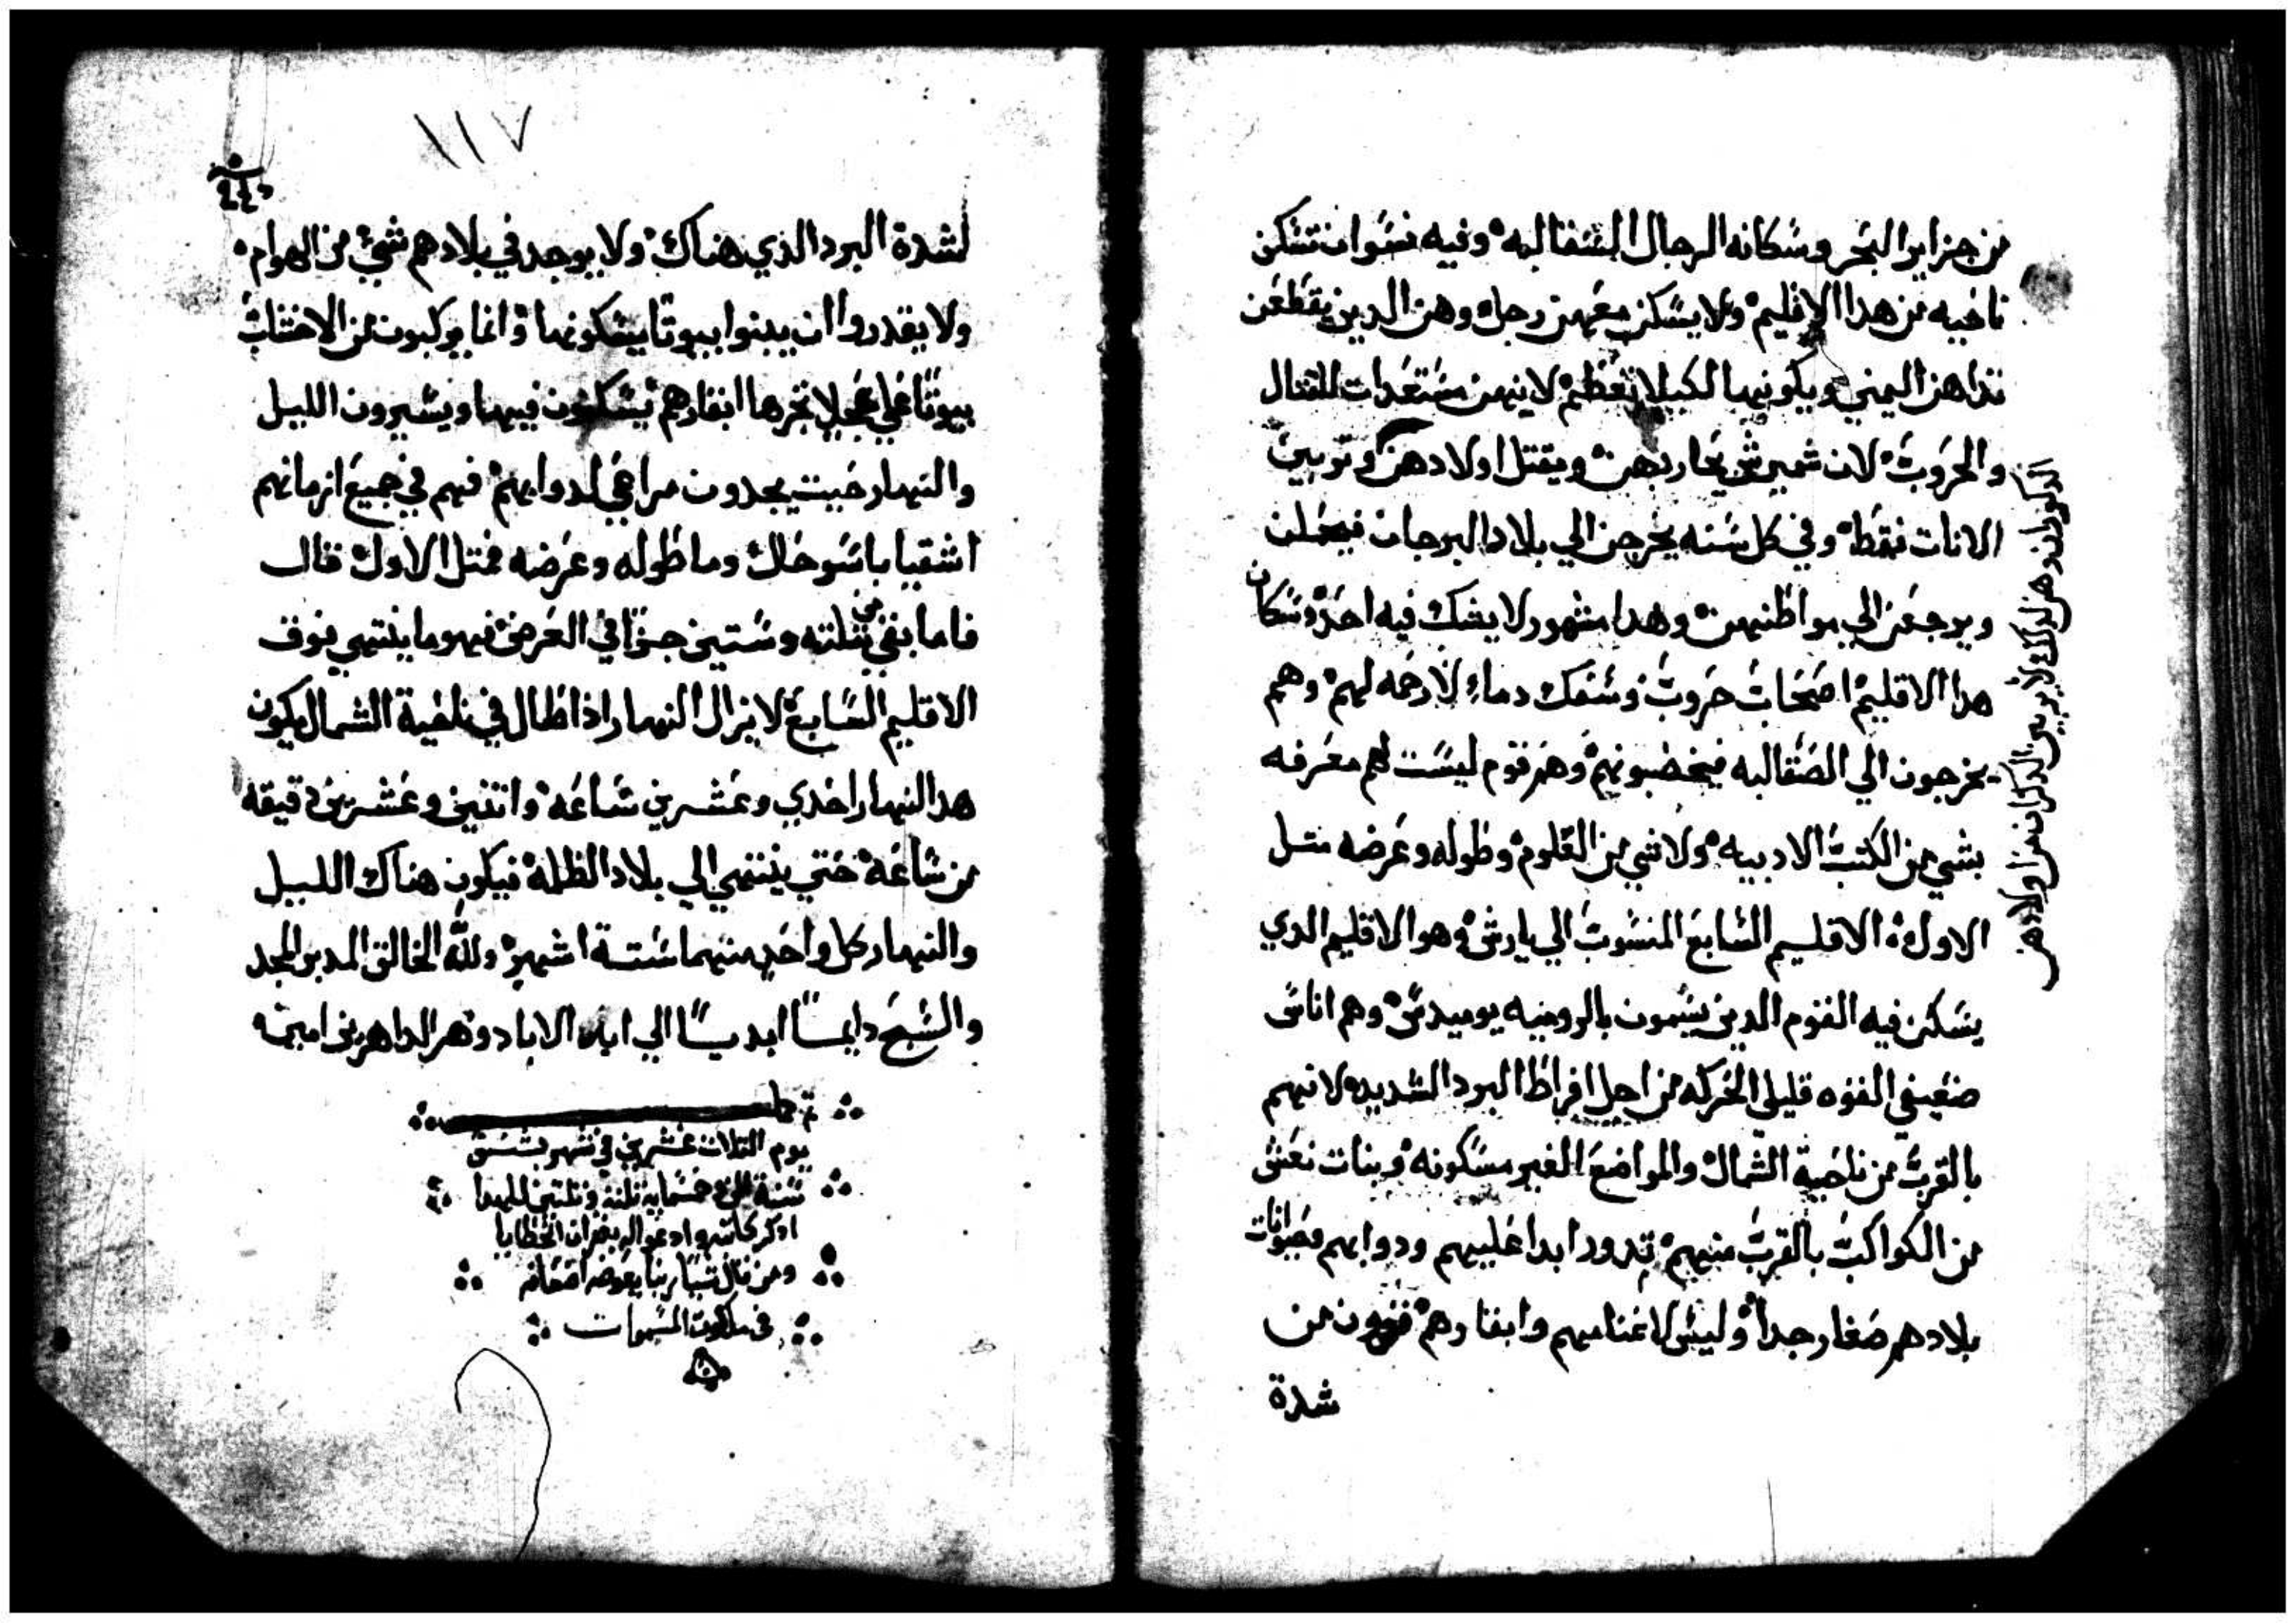 من جزاير البحر وسكانه الرجال السقالبه وفيه نسوان تسكن
ناحيه من هدا الاقليم ولا يسكن معهن رجل وهن الدين يقطعن
تداهن اليمني ويكونها لكيلا تعظم لانهن مستعدات للقتال
والحروب لان شميرش يحاربهن ويقتل اولادهن وتربين
الانات فقط وفي كل سنه يخرجن الي بلاد البرجان فيحملن
ويرجعن الي مواطنهن وهدا مشهور لا يشك فيه احد وسكان
هدا الاقليم اصحاب حروب وسفك دماء لا رحمه لهم وهم
يخرجون الي الصقالبه فيخضبونهم وهم قوم ليست لهم معرفه
بشي من الكتب الادبيه ولا شي من العلوم وطوله وعرضه متل
الاول الاقليم السابع المنسوب الي يارش وهو الاقليم الدي
يسكن فيه القوم الدين يسمون بالروميه يوميدس وهم اناس
ضعيفي القوه قليلي الحركه من اجل افراط البرد الشديد لانهم
بالقرب من ناحية الشمال والمواضع الغير مسكونه وبنات نعش
من الكواكب بالقرب منهم تدور ابدا عليهم ودوابهم وحيوانات
بلادهم صغار جدا وليس لاغنامهم وابقارهم قرون من
شدة
١١٧
لشدة البرد الذي هناك ولا يوجد في بلادهم شي من الهوام
ولا يقدروا ان يبنوا بيوتا يسكونها وانما يركبون من الاخشاب
بيوتا علي عجل تجرها ابقارهم يسكنون فيها ويسيرون الليل
والنهار حيت يجدون مراعي لدوابهم فهم في جميع ازمانهم
اشقيا باسو حال وما طوله وعرضه فمتل الاول قال
فاما بقي من تلته وستين جزا في العرض فهو ما ينتهي فوق
الاقليم السابع لا يزال النهار اذا طال في ناحية الشمال يكون
هدا النهار احدي وعشرين ساعه واتنين وعشرين دقيقه
من ساعه حتي ينتهي الي بلاد الظلمه فيكون هناك الليل
والنهار كل واحد منهما ستة اشهر ولله الخالق المدبر المجد
والسبح دايما ابديا الي ابد الاباد ودهر الداهرين امين
يوم التلات عشرين في شهر بشنس
سنة الف خمسمايه تلته وتلتين للشهدا
ادكر كاتبه وادعو اله بغفران الخطايا
ومن قال شيا ربنا يعوضه اضعافه
في ملكوت السموات